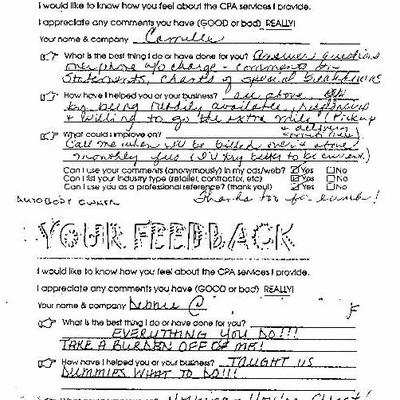 I would like to know how you feel about the CPA services I provide.
I appreciate any comments you have (GOOD or bad) REALLY!
Your name & company
What is the best thing I do or have done for you? Answer questions
over phone w/o charge - comments on
Statements, charts of special breakdowns
How have I helped you or your business? all above
by being readily available,
& willing to go the extra mile! (Pickup
& delivery
What could I improve on?
Call me when will be billed over & above
monthly fees (I'll try better to be current)
Can I use your comments (anonymously) in my ads/web? Yes No
Can I list your industry type (retailer, contractor, etc) Yes No
Can I use you as a professional reference? (thank you!) Yes No
AUTOBODY OWNER
Thanks for
YOUR FEEDBACK
I would like to know how you feel about the CPA services I provide.
I appreciate any comments you have (GOOD or bad) REALLY!
Your name & company Debbie C
What is the best thing I do or have done for you?
EVERYTHING YOU DO!!!
TAKE A BURDEN OFF OF ME!
How have I helped you or your business? TAUGHT US
DUMMIES WHAT TO DO!!!